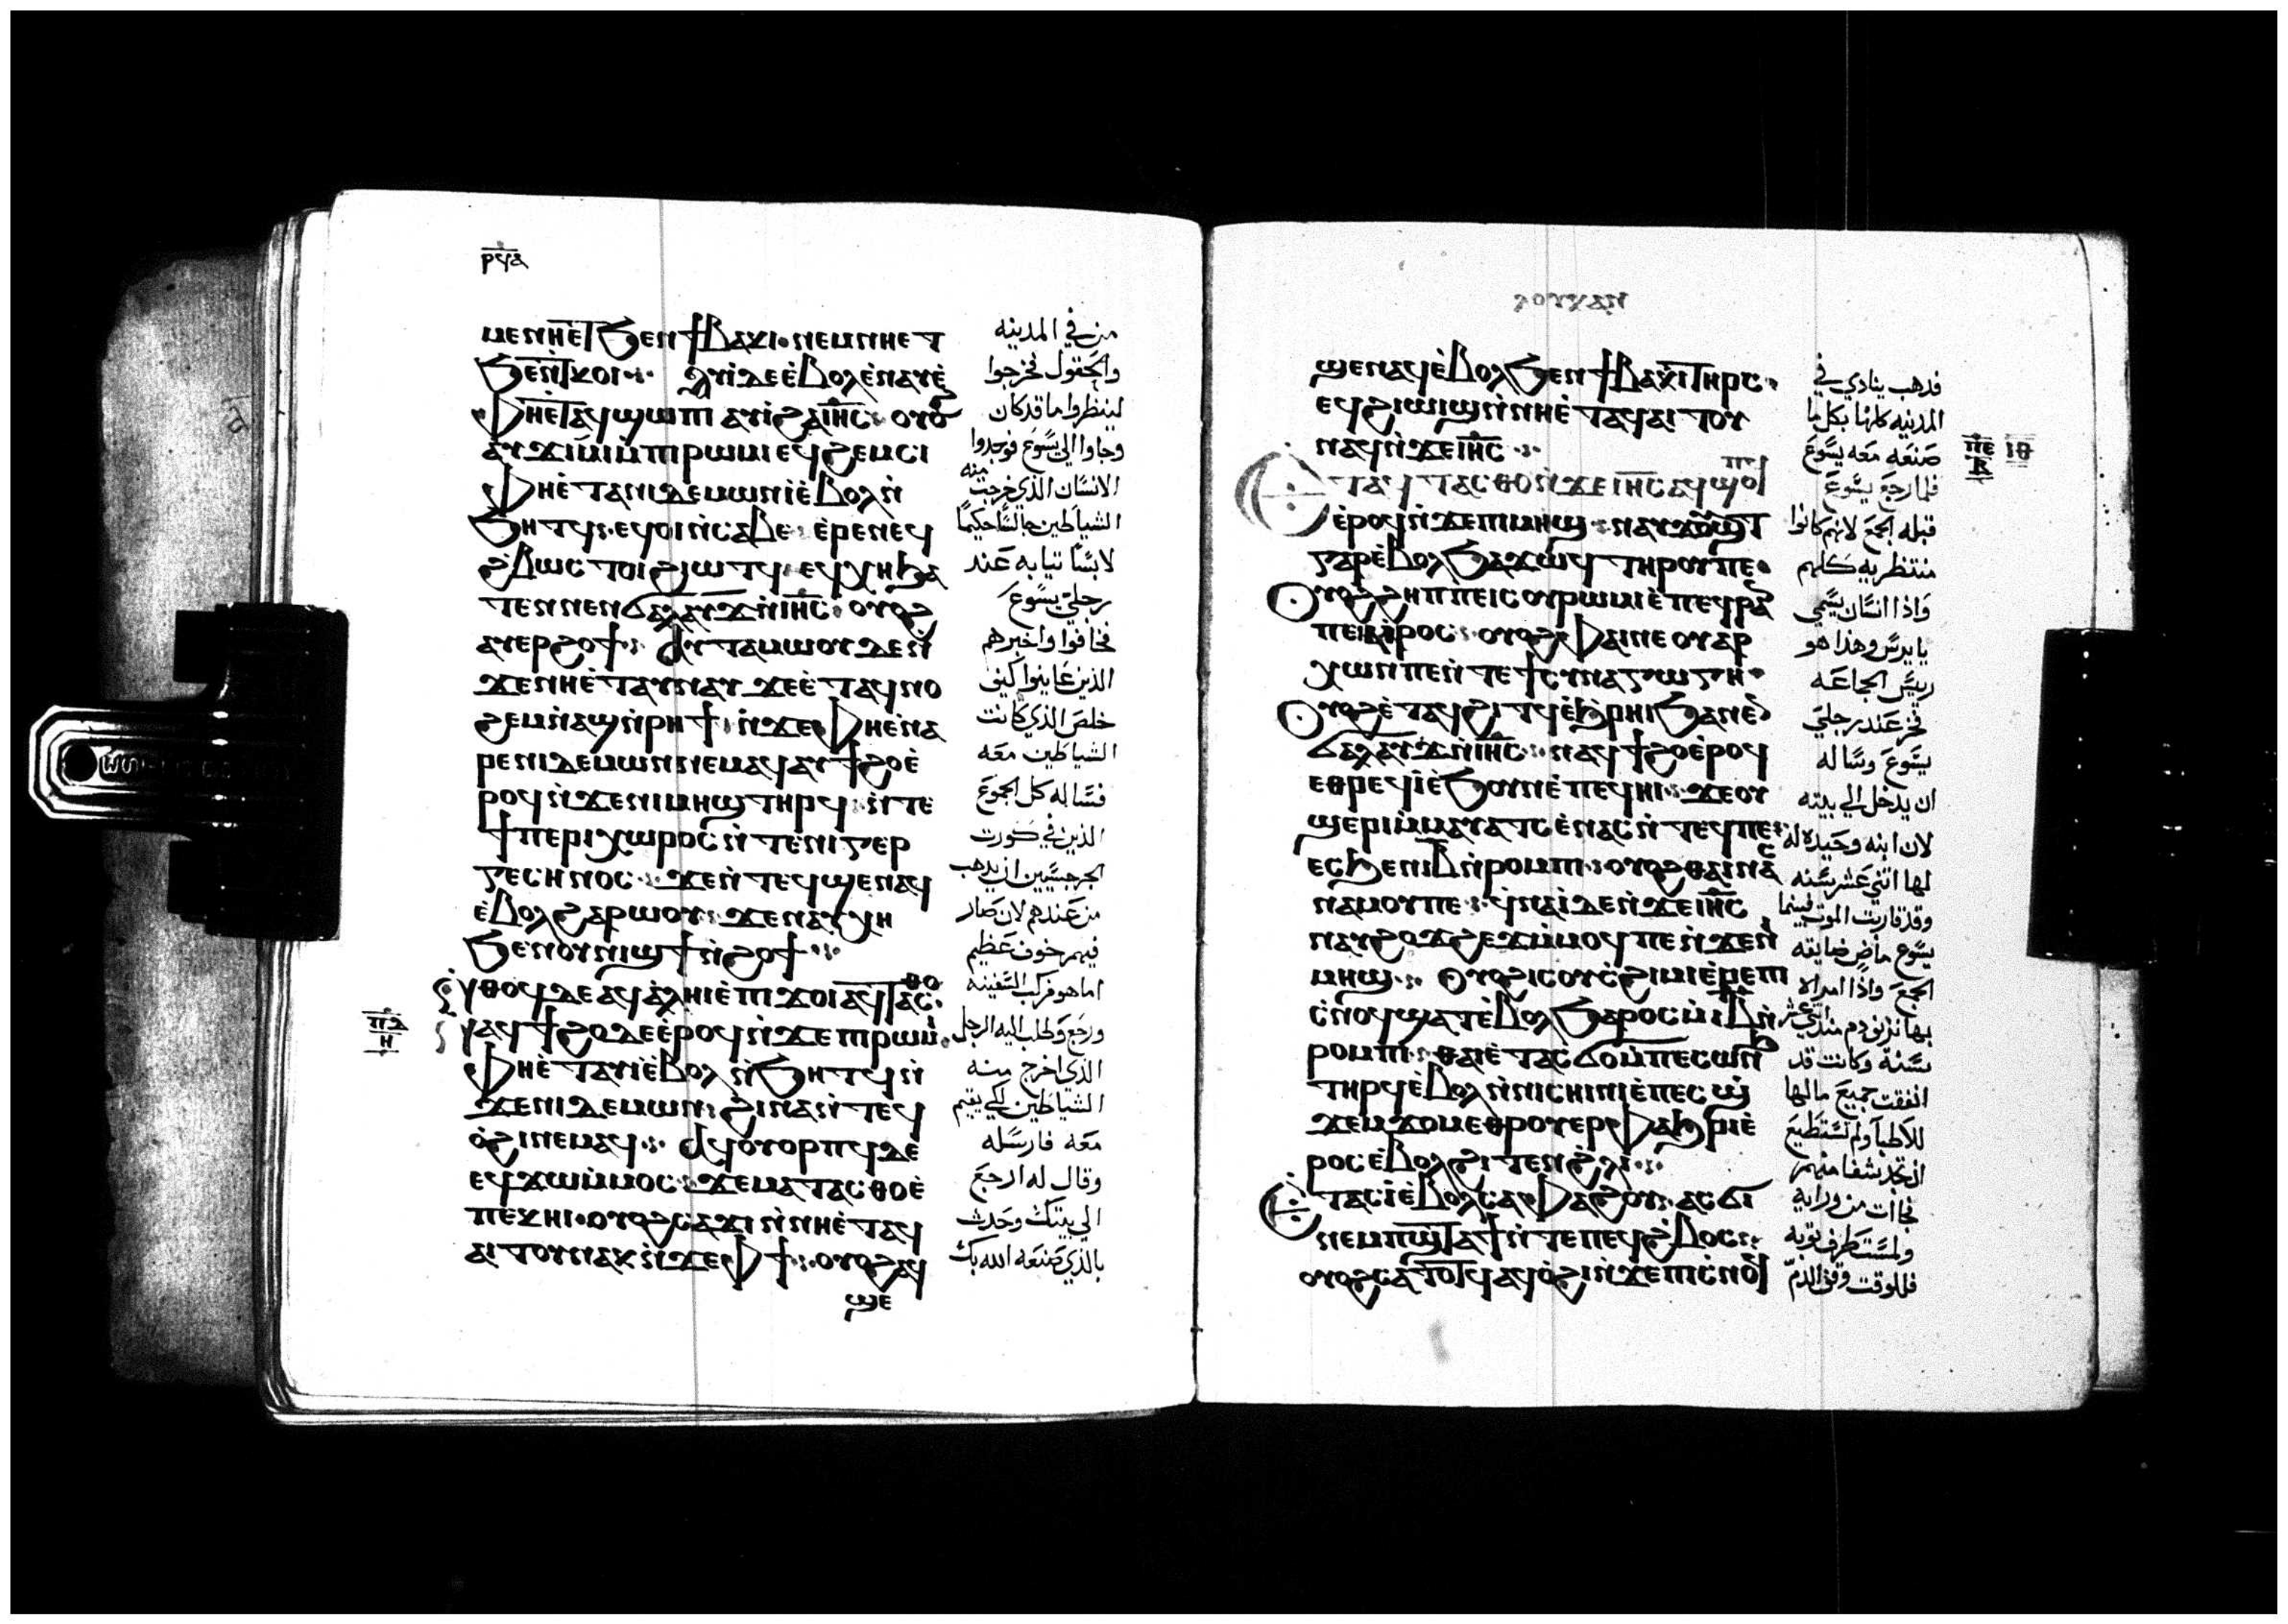 ⲣϥⲁ
ⲙⲉⲛⲛⲏⲉⲧϧⲉⲛϯⲃⲁⲕⲓ· ⲛⲉⲙⲛⲏⲉⲧ
ϧⲉⲛⲧⲕⲟⲓ ⲁⲩⲓⲇⲉⲉⲃⲟⲗⲉⲛⲁⲩⲉ
ⲫⲏⲉⲧⲁϥϣⲱⲡⲓ ⲁⲩⲓϩⲁⲓⲏⲥ ⲟⲩⲟϩ
ⲁⲩϫⲓⲙⲓⲙⲡⲓⲣⲱⲙⲓ ⲉϥϩⲉⲙⲥⲓ
ⲫⲏⲉⲧⲁⲛⲓⲇⲉⲙⲱⲛⲓⲉⲃⲟⲗⲛ
ϧⲏⲧϥ ⲉϥⲟⲓⲛⲥⲁⲃⲉ ⲉⲣⲉⲛⲉϥ
ϩⲃⲱⲥ ⲧⲟⲓϩⲓⲱⲧϥ ⲉϥⲭⲏϧⲁ
ⲧⲉⲛⲛⲉⲛϭⲁⲗⲁⲩϫⲛⲓⲏⲥ ⲟⲩⲟϩ
ⲁⲩⲉⲣϩⲟϯ ⲁⲩⲧⲁⲙⲱⲟⲩⲇⲉⲛ
ϫⲉⲛⲏⲉⲧⲁⲩⲛⲁⲩ ϫⲉⲉⲧⲁϥⲛⲟ
ϩⲉⲙⲛⲁϣⲛⲣⲏϯ ⲛϫⲉⲫⲏⲉⲛⲁ
ⲣⲉⲛⲓⲇⲉⲙⲱⲛⲛⲉⲙⲁϥ ⲁⲩϯϩⲟⲉ
ⲣⲟϥⲛϫⲉⲛⲓⲙⲏϣⲧⲏⲣϥ ⲛⲧⲉ
ϯⲡⲉⲣⲓⲭⲱⲣⲟⲥⲛⲧⲉⲛⲓⲅⲉⲣ
ⲅⲉⲥⲏⲛⲟⲥ ϫⲉⲛⲧⲉϥϣⲉⲛⲁϥ
ⲉⲃⲟⲗϩⲁⲣⲱⲟⲩ ϫⲉⲛⲁⲩⲭⲏ
ϧⲉⲛⲟⲩⲛⲓϣϯⲛϩⲟϯ
ⲛⲑⲟϥⲇⲉⲁϥⲁⲗⲏⲓⲉⲡⲓϫⲟⲓ ⲁϥⲧⲁⲥⲑⲟ
ⲡⲇ ⲛⲁϥϯϩⲟⲇⲉⲉⲣⲟϥⲛϫⲉⲡⲓⲣⲱⲙⲓ
ⲏ
ⲫⲏⲉⲧⲁⲩⲓⲉⲃⲟⲗⲛϧⲏⲧϥⲛ
ϫⲉⲛⲓⲇⲉⲙⲱⲛ ϩⲓⲛⲁⲛⲧⲉϥ
ⲟϩⲓⲛⲉⲙⲁϥ ⲁϥⲟⲩⲟⲣⲡϥⲇⲉ
ⲉϥϫⲱⲙⲙⲟⲥ ϫⲉⲙⲁⲧⲁⲥⲑⲟⲉ
ⲡⲉⲕⲏⲓ ⲟⲩⲟϩⲥⲁϫⲓⲛⲛⲏⲉⲧⲁϥ
ⲁⲓⲧⲟⲩⲛⲁⲕⲛϫⲉⲫϯ ⲟⲩⲟϩⲁϥ
ϣⲉ
من في المدينه
والحقول فخرجوا
لينظروا ما قد كان
وجاوا الي يسوع فوجدوا
الانسان الذي خرجت منه
الشياطين جالسًا حكيمًا
لابسًا ثيابه عند
رجلي يسوع
فخافوا واخبرهم
الذين عاينوا كيف
خلص الذي كانت
الشياطين معه
فساله كل الجموع
الذين في كورت
الجرجسيين ان يذهب
من عندهم لان صار
فيهم خوف عظيم
اما هو فركب السفينه
ورجع وطلب اليه الرجل
الذي اخرج منه
الشياطين لكي يقيم
معه فارسله
وقال له ارجع
الي بيتك وحدث
بالذي صنعه الله بك
ⲗⲟⲩⲕⲁⲛ
ϣⲉⲛⲁϥⲉⲃⲟⲗϧⲉⲛϯⲃⲁⲕⲓⲧⲏⲣⲥ
ⲉϥϩⲓⲱⲓϣⲛⲛⲏⲉⲧⲁϥⲁⲓⲧⲟⲩ
ⲛⲁϥⲛϫⲉⲓⲏⲥ
ⲉⲧⲁϥⲧⲁⲥⲑⲟⲛϫⲉⲓⲏⲥ ⲁϥϣⲟⲡϥ
ⲉⲣⲟϥⲛϫⲉⲡⲓⲙⲏϣ ⲛⲁⲩϫⲟⲩϣⲧ
ⲅⲁⲣⲉⲃⲟⲗϧⲁϫⲱϥ ⲧⲏⲣⲟⲩⲡⲉ
ⲟⲩⲟϩϩⲏⲡⲡⲉⲓⲥⲟⲩⲣⲱⲙⲓⲉⲡⲉϥⲣⲁ
ⲡⲉⲓⲁⲓⲣⲟⲥ ⲟⲩⲟϩⲫⲁⲓⲡⲉⲟⲩⲁⲣ
ⲭⲱⲛⲡⲉⲛⲧⲉϯⲥⲩⲛⲁⲅⲱⲅⲏ
ⲟⲩⲟϩⲉⲧⲁϥϩⲓⲧϥⲉϧⲣⲏⲓϧⲁⲛⲉⲛ
ϭⲁⲗⲁⲩϫⲛⲓⲏⲥ ⲛⲁϥϯϩⲟⲉⲣⲟϥ
ⲉⲑⲣⲉϥⲓⲉϧⲟⲩⲛⲉⲡⲉϥⲏⲓ ϫⲉⲟⲩ
ϣⲉⲣⲓⲙⲙⲁⲩⲁⲧⲥⲉⲛⲁⲥⲛⲧⲉϥⲡⲉ
ⲉⲥϧⲉⲛⲓⲃⲛⲣⲟⲙⲡⲓ ⲟⲩⲟϩⲑⲁⲓⲛⲁⲥ
ⲛⲁⲙⲟⲩⲡⲉ ϥⲛⲁⲓⲇⲉⲛϫⲉⲓⲏⲥ
ⲛⲁⲩϩⲟϫϩⲉϫⲙⲙⲟϥⲡⲉⲛϫⲉⲛⲓ
ⲙⲏϣ ⲟⲩⲟϩⲓⲥⲟⲩⲥϩⲓⲙⲓⲉⲣⲉⲡⲓ
ⲥⲛⲟϥϣⲁⲧⲉⲃⲟⲗϧⲁⲣⲟⲥⲓⲥⲓⲃⲛ
ⲣⲟⲙⲡⲓ ⲑⲁⲓⲉⲧⲁⲥϭⲟⲙⲡⲉⲥⲱⲛϧ
ⲧⲏⲣϥⲉⲃⲟⲗⲛⲛⲓⲥⲏⲓⲛⲓⲉⲡⲉⲥϣ
ϫⲉⲙϫⲟⲙⲉⲑⲣⲟⲩⲉⲣⲫⲁϧⲣⲓⲉ
ⲣⲟⲥⲉⲃⲟⲗϩⲓⲧⲉⲛϩⲗⲓ
ⲉⲧⲁⲥⲓⲉⲃⲟⲗⲥⲁⲫⲁϩⲟⲩ ⲁⲥϭⲓ
ⲛⲉⲙⲡϣⲧⲁϯⲛⲧⲉⲡⲉϥϩⲃⲟⲥ
ⲟⲩⲟϩⲥⲁⲧⲟⲧϥⲁϥⲟϩⲓⲛϫⲉⲡⲓⲥⲛⲟϥ
فذهب ينادي في
المدينه كلها بكل ما
صنعه معه يسوع
ⲡⲉ ⲓⲑ
ⲃ
فلما رجع يسوع
قبله الجمع لانهم كانوا
منتظريه كلهم
واذا انسان يسمي
يايرس وهذا هو
رييس الجماعه
فخر عند رجلي
يسوع وساله
ان يدخل الي بيته
لان ابنه وحيده له
لها اثني عشر سنه
وقد قاربت الموت فبينما
يسوع ماضٍ ضايقته
الجمع واذا امراه
بها نزف دم منذ اثني عشر
سنه وكانت قد
انفقت جميع مالها
للاطبا ولم تستطيع
ان تجد شفا منهم
فجاات من ورايه
ولمست طرف ثوبه
فللوقت وقف الدم